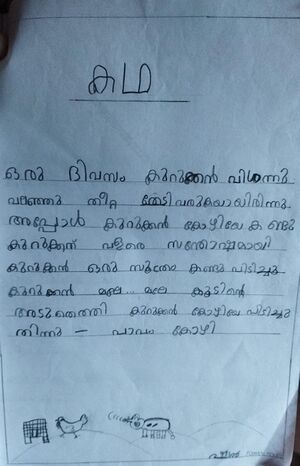 കഥ
ഒരു ദിവസം കുറുക്കൻ വിശന്നു
വലഞ്ഞു തീറ്റ തേടിവരുകയായിരിന്നു.
അപ്പോൾ കുറുക്കൻ കോഴിയെ കണ്ടു
കുറുക്കന് വളരെ സന്തോഷമായി
കുറുക്കൻ ഒരു സൂത്രം കണ്ടുപിടിച്ചു
കുറുക്കൻ മെല്ലെ... മെല്ലെ കൂടിന്റെ
അടുത്തെത്തി കുറുക്കൻ കോഴിയെ പിടിച്ചു
തിന്നു – പാവം കോഴി